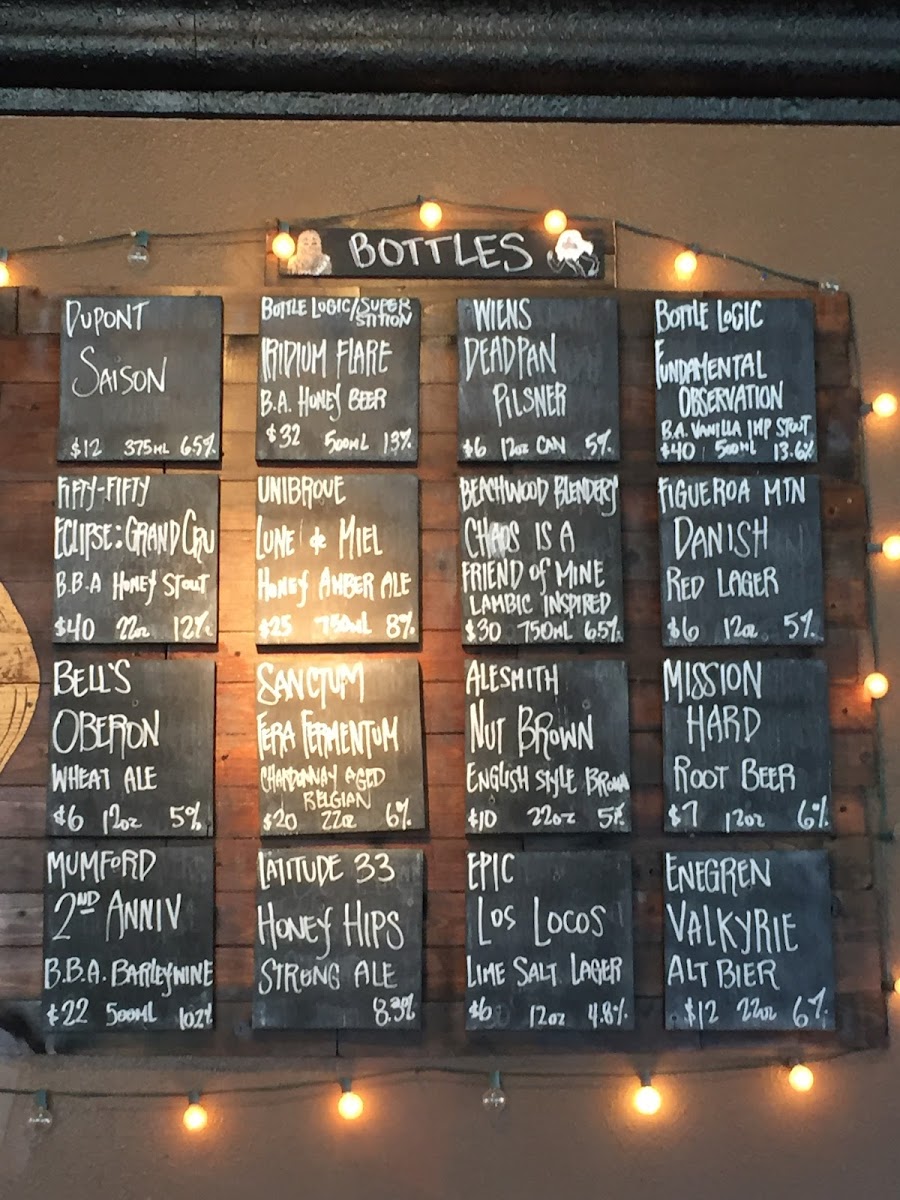 BOTTLES
DUPONT
SAISON
$12 375ML 6.5%
BOTTLE LOGIC/SUPER
STITION
IRIDIUM FLARE
B.A. HONEY BEER
$32 500ML 13%
WIENS
DEADPAN
PILSNER
$6 12oz CAN 5%
BOTTLE LOGIC
FUNDAMENTAL
OBSERVATION
B.A. VANILLA IMP STOUT
$40 500ML 13.6%
FIFTY-FIFTY
ECLIPSE: GRAND CRU
B.B.A HONEY STOUT
$40 22oz 12%
UNIBROUE
LUNE de MIEL
HONEY AMBER ALE
$25 750ML 8%
BEACHWOOD BLENDERY
CHAOS IS A
FRIEND OF MINE
LAMBIC INSPIRED
$30 750ML 6.5%
FIGUEROA MTN
DANISH
RED LAGER
$6 12oz 5%
BELL'S
OBERON
WHEAT ALE
$6 12oz 5%
SANCTUM
FERA FERMENTUM
CHARDONNAY AGED
BELGIAN
$20 22oz 6%
ALESMITH
NUT BROWN
ENGLISH STYLE BROWN
$10 22oz 5%
MISSION
HARD
ROOT BEER
$7 12oz 6%
MUMFORD
2ND ANNIV
B.B.A. BARLEYWINE
$22 500ML 10.2%
LATITUDE 33
HONEY HIPS
STRONG ALE
8.3%
EPIC
LOS LOCOS
LIME SALT LAGER
$6 12oz 4.8%
ENEGREN
VALKYRIE
ALT BIER
$12 22oz 6%